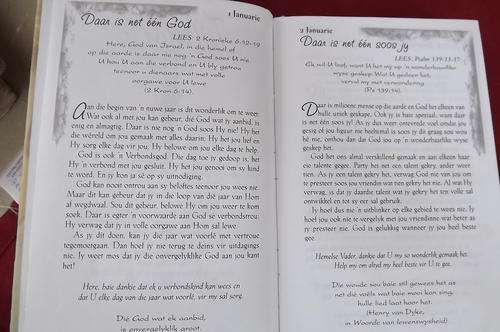 1 Januarie
Daar is net één God
LEES: 2 Kronieke 6:12-19
Here, God van Israel, in die hemel of
op die aarde is daar nie nog 'n God soos U nie.
U hou U aan die verbond en U bly getrou
teenoor u dienaars wat met volle
oorgawe voor U lewe
(2 Kron 6:14).
Aan die begin van 'n nuwe jaar is dit wonderlik om te weet:
Wat ook al met jou kan gebeur, dié God wat jy aanbid, is
enig en almagtig. Daar is nie nog 'n God soos Hy nie! Hy het
die wêreld om jou gemaak met alles daarin. Hy het jou lief en
Hy sorg elke dag vir jou. Hy belowe om jou elke dag te help.
God is ook 'n Verbondsgod. Die dag toe jy gedoop is, het
Hy 'n verbond met jou gesluit. Hy het jou genooi om sy kind
te word. En jy kon ja sê op sy uitnodiging.
God kan nooit ontrou aan sy beloftes teenoor jou wees nie.
Maar dit kan gebeur dat jy in die loop van dié jaar van Hom
af wegdwaal. Sou dit gebeur, belowe Hy om jou weer te kom
soek. Daar is egter 'n voorwaarde aan God se verbondstrou:
Hy verwag dat jy in volle oorgawe aan Hom sal lewe.
As jy dít doen, kan jy die jaar wat voorlê met vertroue
tegemoetgaan. Dan hoef jy nie terug te deins vir uitdagings
nie. Jy weet mos dat jy die onvergelyklike God aan jou kant
het!
Here, baie dankie dat ek u verbondskind kan wees en
dat U elke dag van die jaar wat voorlê, vir my sal sorg.
Dié God wat ek aanbid,
is onvergelyklik groot.
2 Januarie
Daar is net één soos jy
LEES: Psalm 139:13-17
Ek wil U loof, want U het my op 'n wonderbaarlike
wyse geskep. Wat U gedoen het,
vervul my met verwondering
(Ps 139:14).
Daar is miljoene mense op die aarde en God het elkeen van
hulle uniek geskape. Ook jy is baie spesiaal, want daar
is net één soos jy! As jy dus weer ontevrede voel omdat jou
gesig of jou figuur nie heeltemal is soos jy dit graag sou wou
hê nie, onthou dan dat God jou op 'n wonderbaarlike wyse
geskep het.
God het ons almal verskillend gemaak en aan elkeen haar
eie talente gegee. Party het net een talent gekry, ander weer
tien. As jy een talent gekry het, verwag God nie van jou om
te presteer soos jou vriendin wat tien gekry het nie. Al wat Hy
verwag, is dat jy daardie talent wat jy gekry het ten volle sal
ontwikkel en tot sy eer sal gebruik.
Jy hoef dus nie 'n uitblinker op elke gebied te wees nie. Jy
hoef jou ook nie te vergelyk met jou vriendinne wat beter as
jy presteer nie. God is gelukkig wanneer jy jou heel beste
gee.
Hemelse Vader, dankie dat U my so wonderlik gemaak het.
Help my om altyd my heel beste vir U te gee.
Die woude sou baie stil gewees het as
net dié voëls wat baie mooi kan sing,
hulle lied laat hoor het.
(Henry van Dyke,
in Woorde van lewenswysheid)